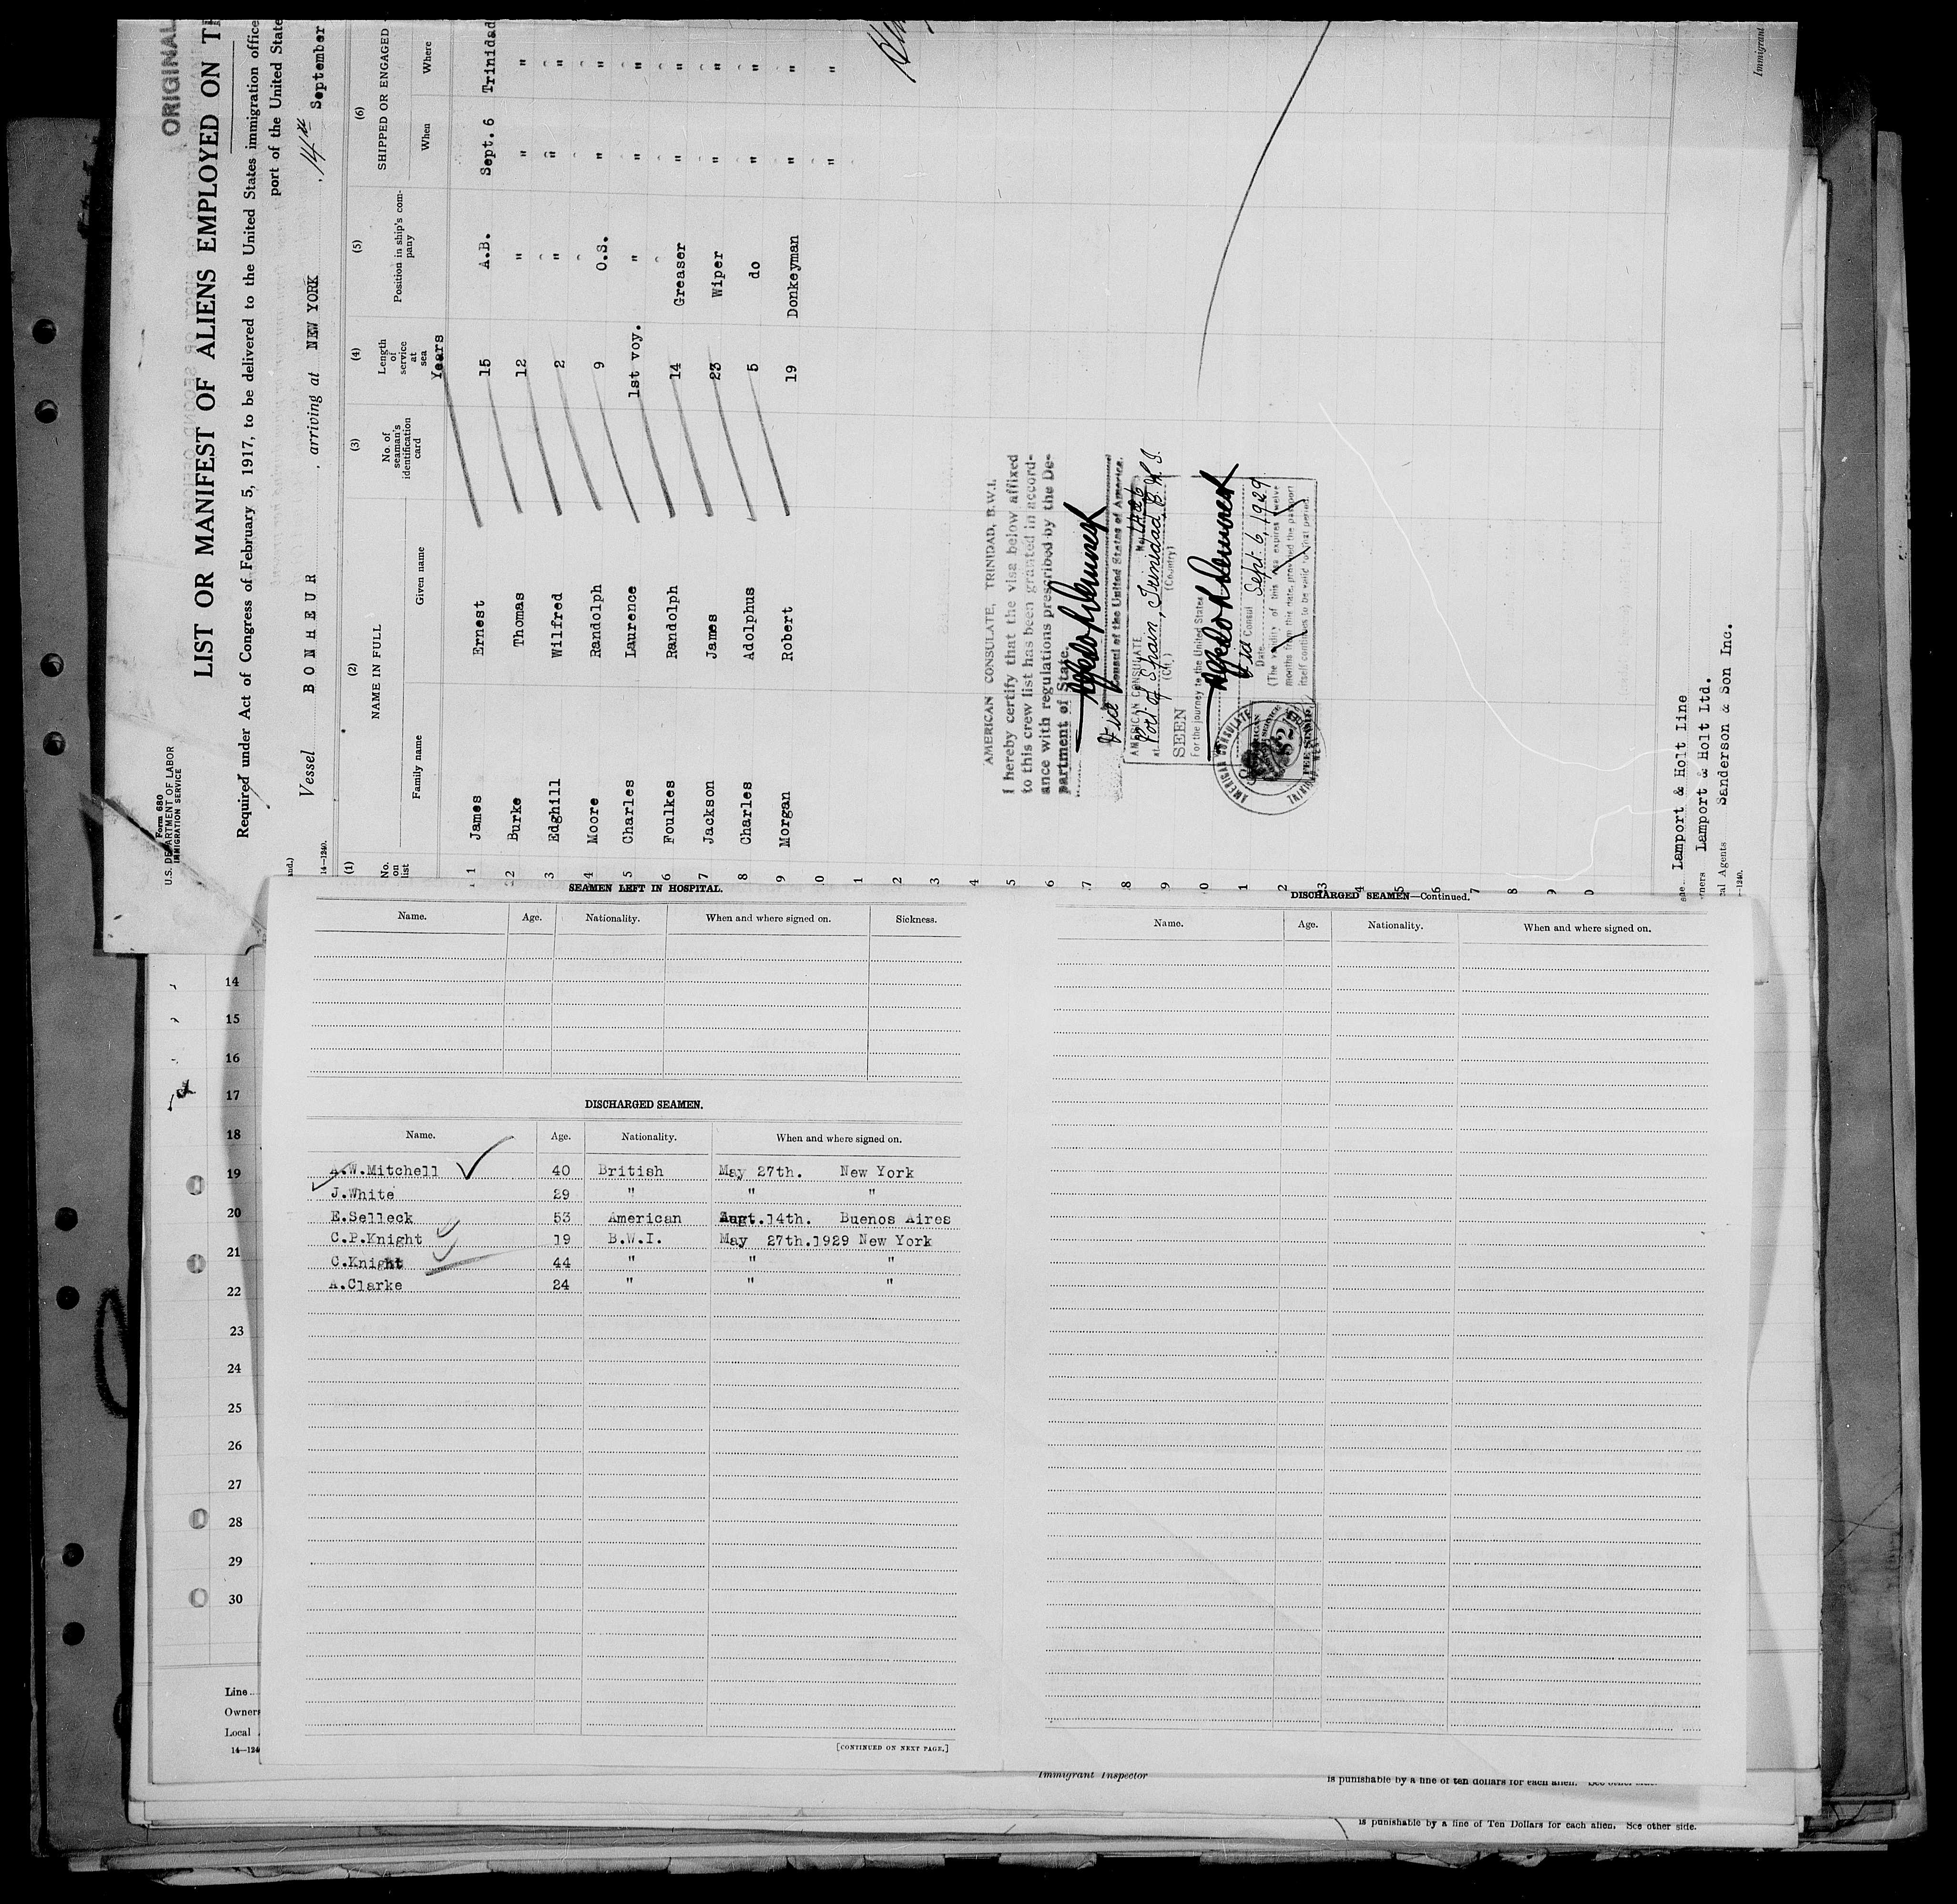 ORIGINAL
Form 680
U.S. DEPARTMENT OF LABOR
IMMIGRATION SERVICE
LIST OR MANIFEST OF ALIENS EMPLOYED ON T
Required under Act of Congress of February 5, 1917, to be delivered to the United States immigration office
port of the United State
Vessel BONHEUR , arriving at NEW YORK , 14th September
and.)
14—1240.
(1) (2) (3) (4) (5) (6)
No. on list NAME IN FULL No. of seaman's identification card Length of service at sea Position in ship's company SHIPPED OR ENGAGED
Family name Given name Years When Where
1 James Ernest 15 A.B. Sept. 6 Trinidad
2 Burke Thomas 12 " " "
3 Edghill Wilfred 2 " " "
4 Moore Randolph 9 O.S. " "
5 Charles Laurence 1st voy. " " "
6 Foulkes Randolph 14 Greaser " "
7 Jackson James 23 Wiper " "
8 Charles Adolphus 5 do " "
9 Morgan Robert 19 Donkeyman " "
0 " "
1
2
3
4
5
6
7
8
9
0
1
2
3
4
5
6
7
8
9
0
AMERICAN CONSULATE, TRINIDAD, B.W.I.
I hereby certify that the visa below affixed
to this crew list has been granted in accord-
ance with regulations prescribed by the De-
partment of State.
Vice Consul of the United States of America.
AMERICAN CONSULATE
at Port of Spain, Trinidad, B.W.I.
(City) (Country)
SEEN
For the journey to the United States
Vice Consul
Date Sept. 6, 1929
(The validity of this visa expires twelve
months from this date, provided the passport
itself continues to be valid for that period.
AMERICAN CONSULATE
Lamport & Holt Line
ners Lamport & Holt Ltd.
cal Agents Sanderson & Son Inc.
—1240.
Immigrant
SEAMEN LEFT IN HOSPITAL.
Name. Age. Nationality. When and where signed on. Sickness.
DISCHARGED SEAMEN.
Name. Age. Nationality. When and where signed on.
A.W.Mitchell 40 British May 27th. New York
J.White 29 " " "
E.Selleck 53 American Augt.14th. Buenos Aires
C.P.Knight 19 B.W.I. May 27th.1929 New York
C.Knight 44 " " "
A.Clarke 24 " " "
[CONTINUED ON NEXT PAGE.]
DISCHARGED SEAMEN—Continued.
Name. Age. Nationality. When and where signed on.
14
15
16
17
18
19
20
21
22
23
24
25
26
27
28
29
30
Line
Owners
Local
14—124
Immigrant Inspector
is punishable by a fine of ten dollars for each alien. See other side.
is punishable by a fine of Ten Dollars for each alien. See other side.